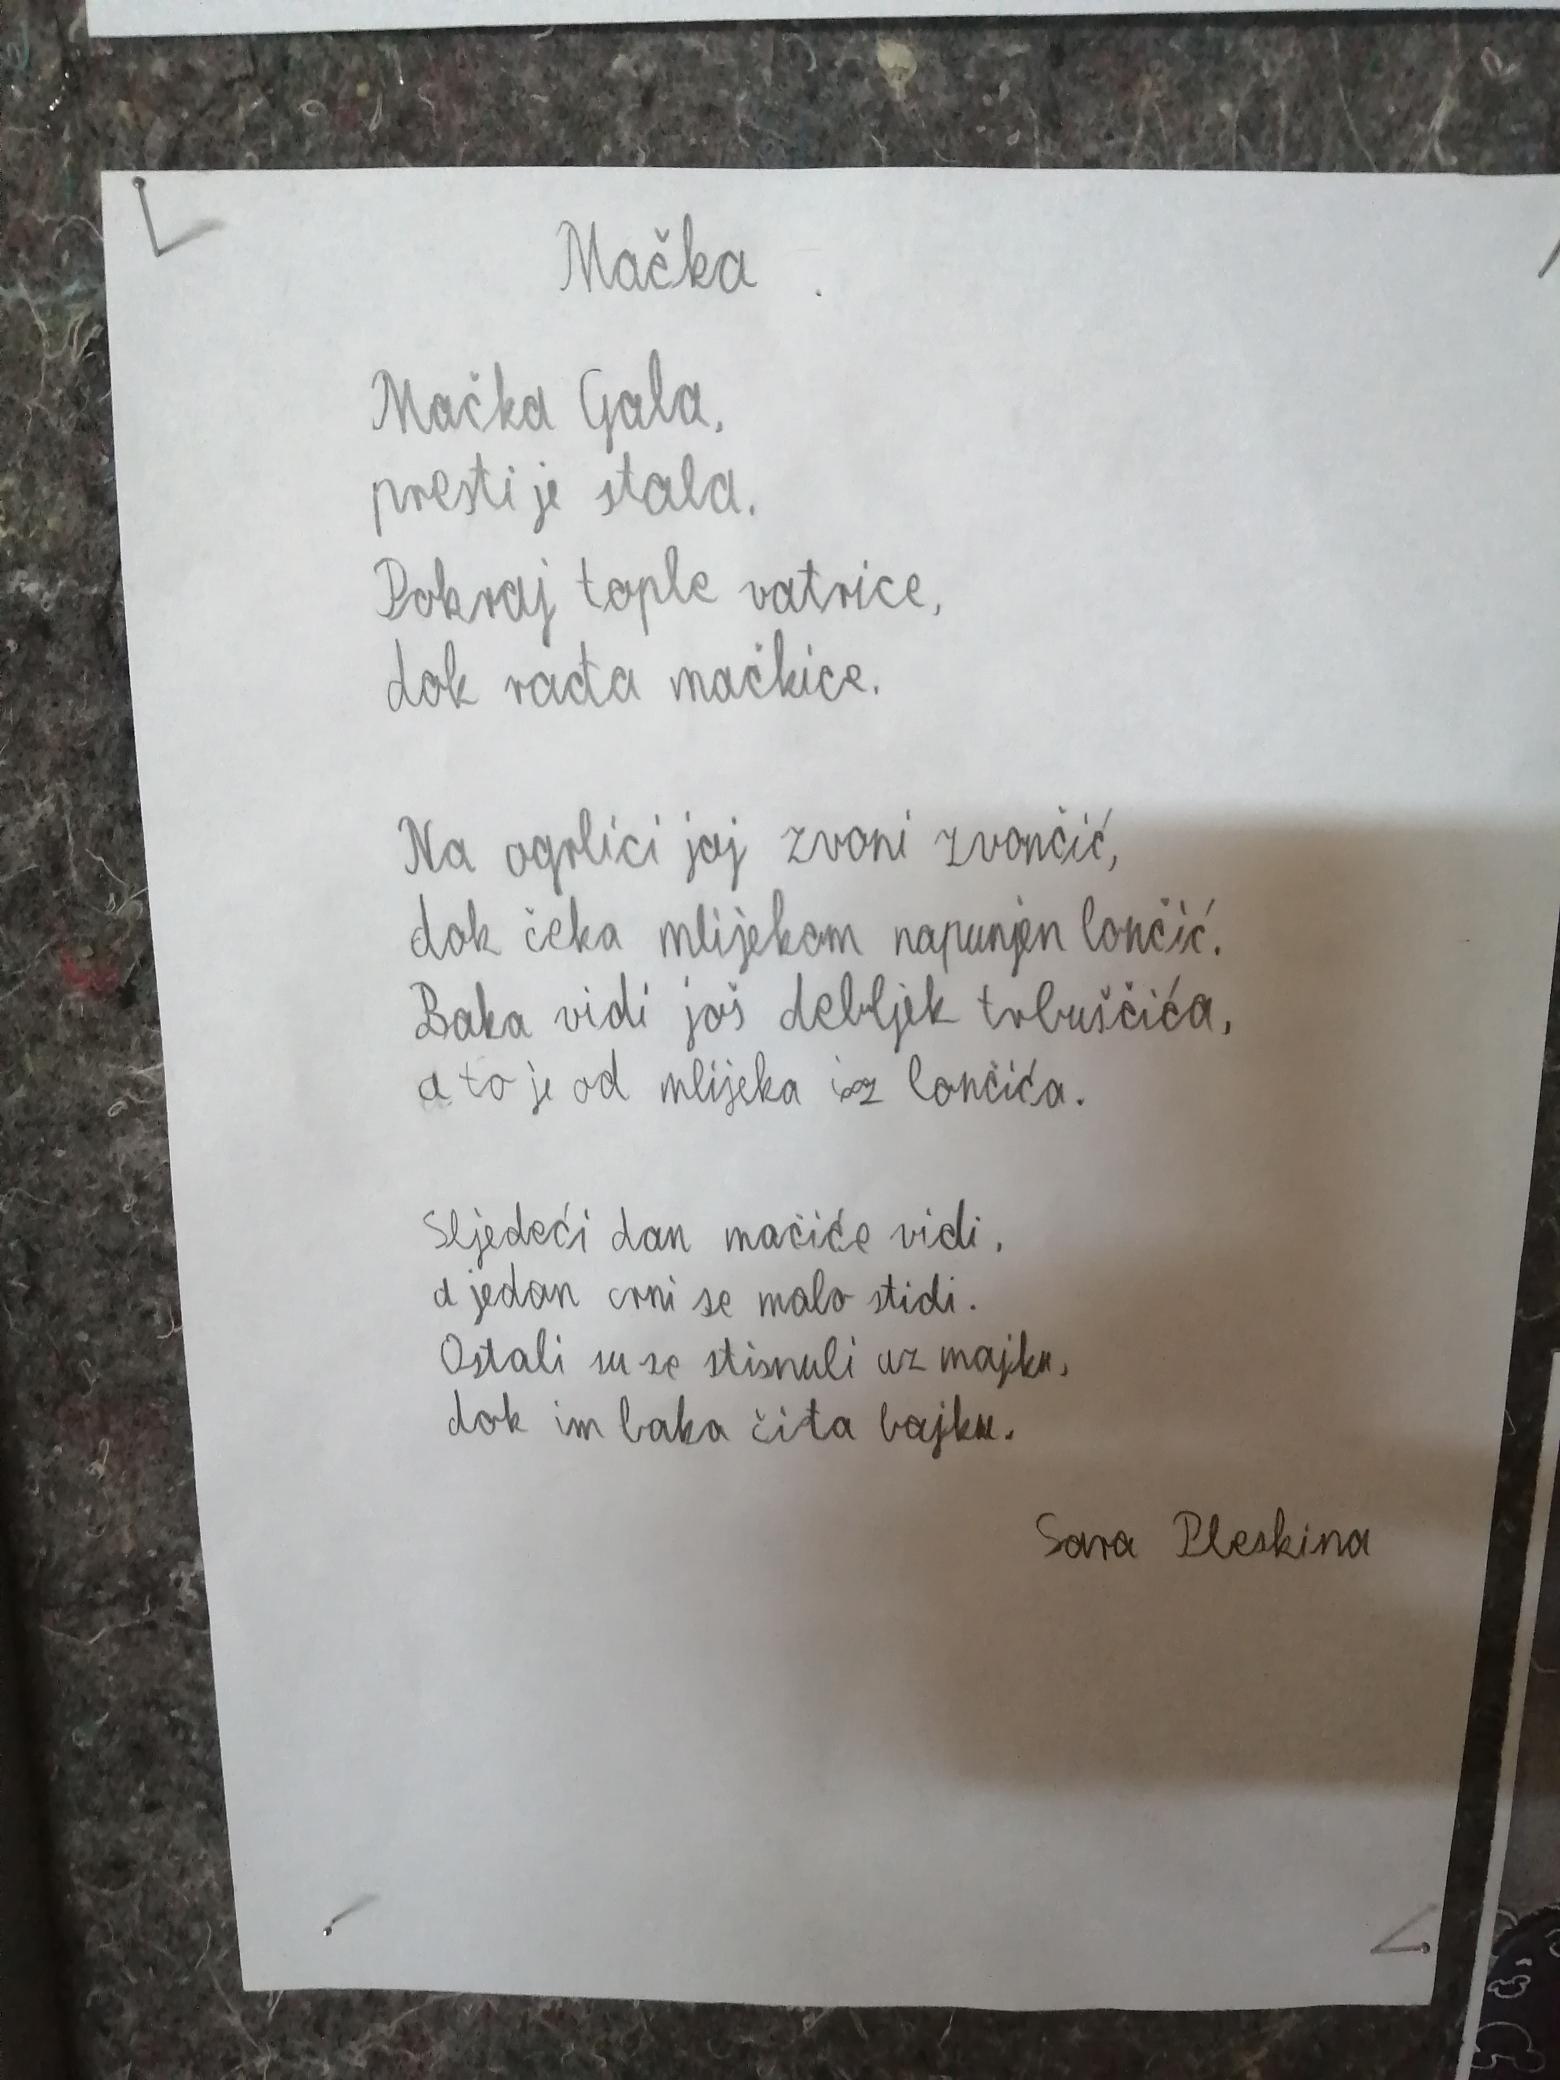 Mačka
Mačka Gala,
presti je stala.
Pokraj tople vatrice,
dok rađa mačkice.
Na ogrlici joj zvoni zvončić,
dok čeka mlijekom napunjen lončić.
Baka vidi još debljek trbuščića,
a to je od mlijeka iz lončića.
Sljedeći dan mačiće vidi,
a jedan crni se malo stidi.
Ostali su se stisnuli uz majku,
dok im baka čita bajku.
Sara Pleskina